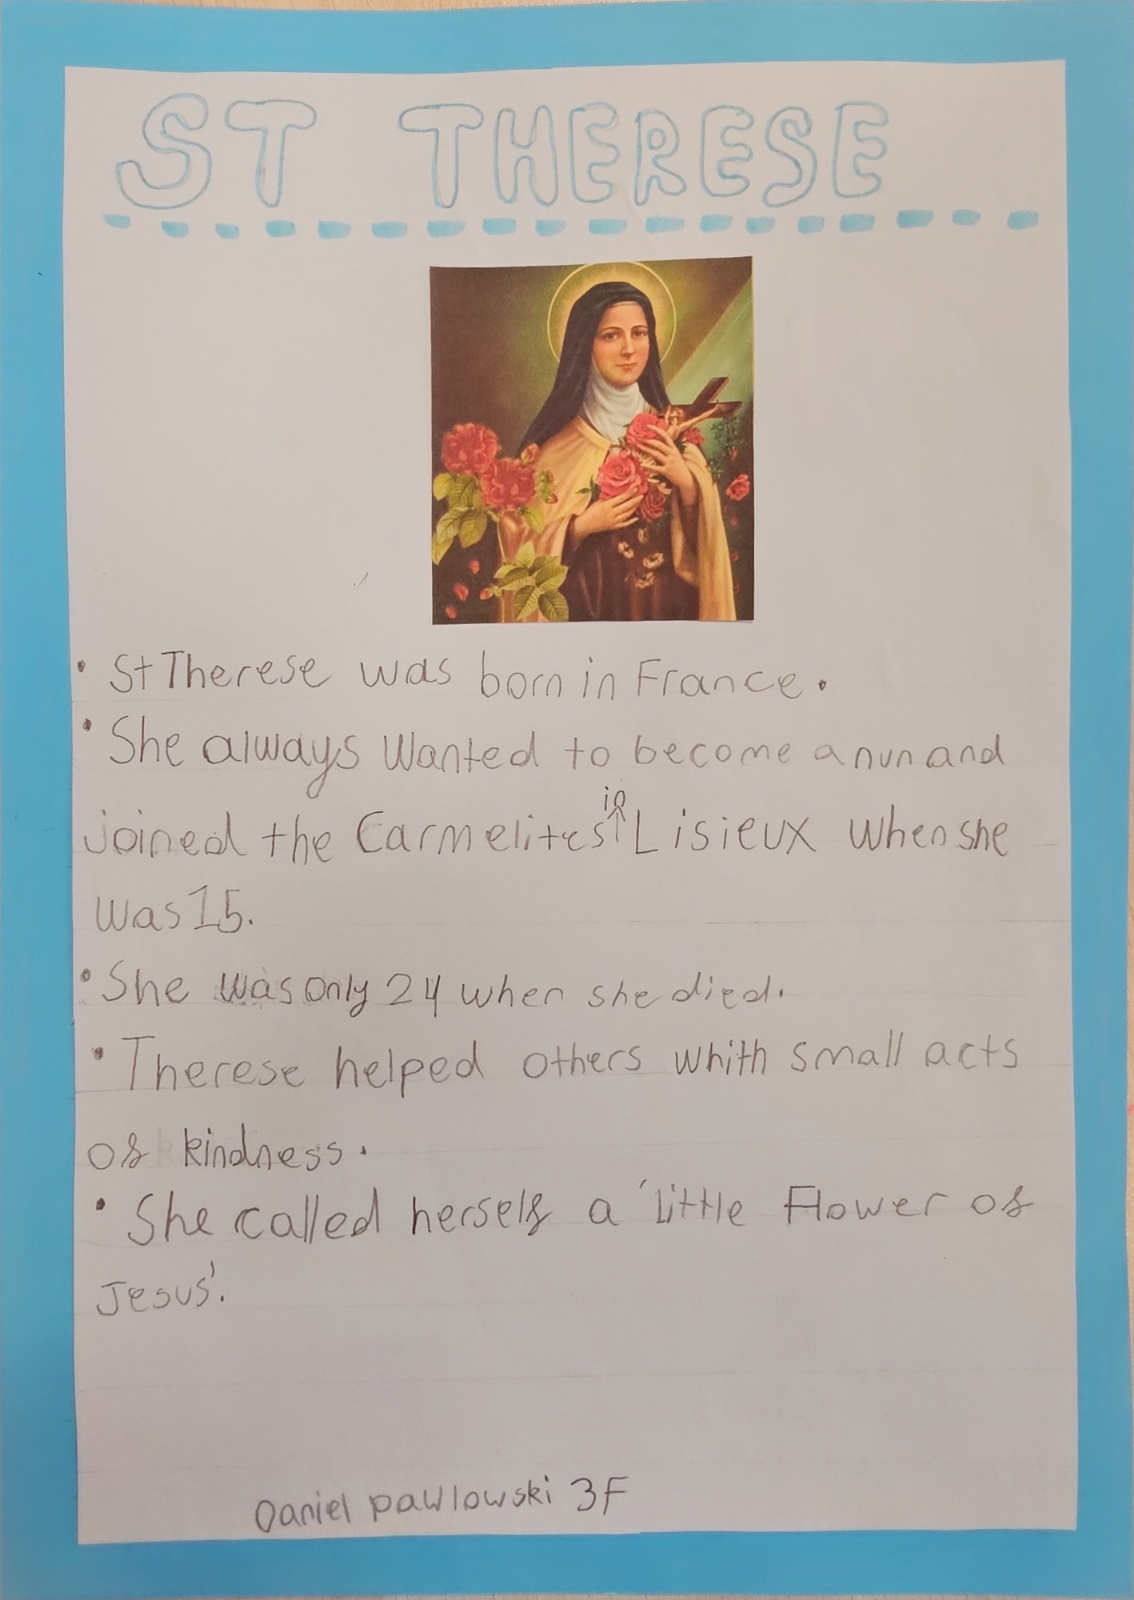 ST THERESE
• St Therese was born in France.
• She always wanted to become a nun and
joined the Carmelites in Lisieux when she
was 15.
• She was only 24 when she died.
• Therese helped others whith small acts
of kindness.
• She called herself a 'Little Flower of
Jesus'.
Daniel pawlowski 3F